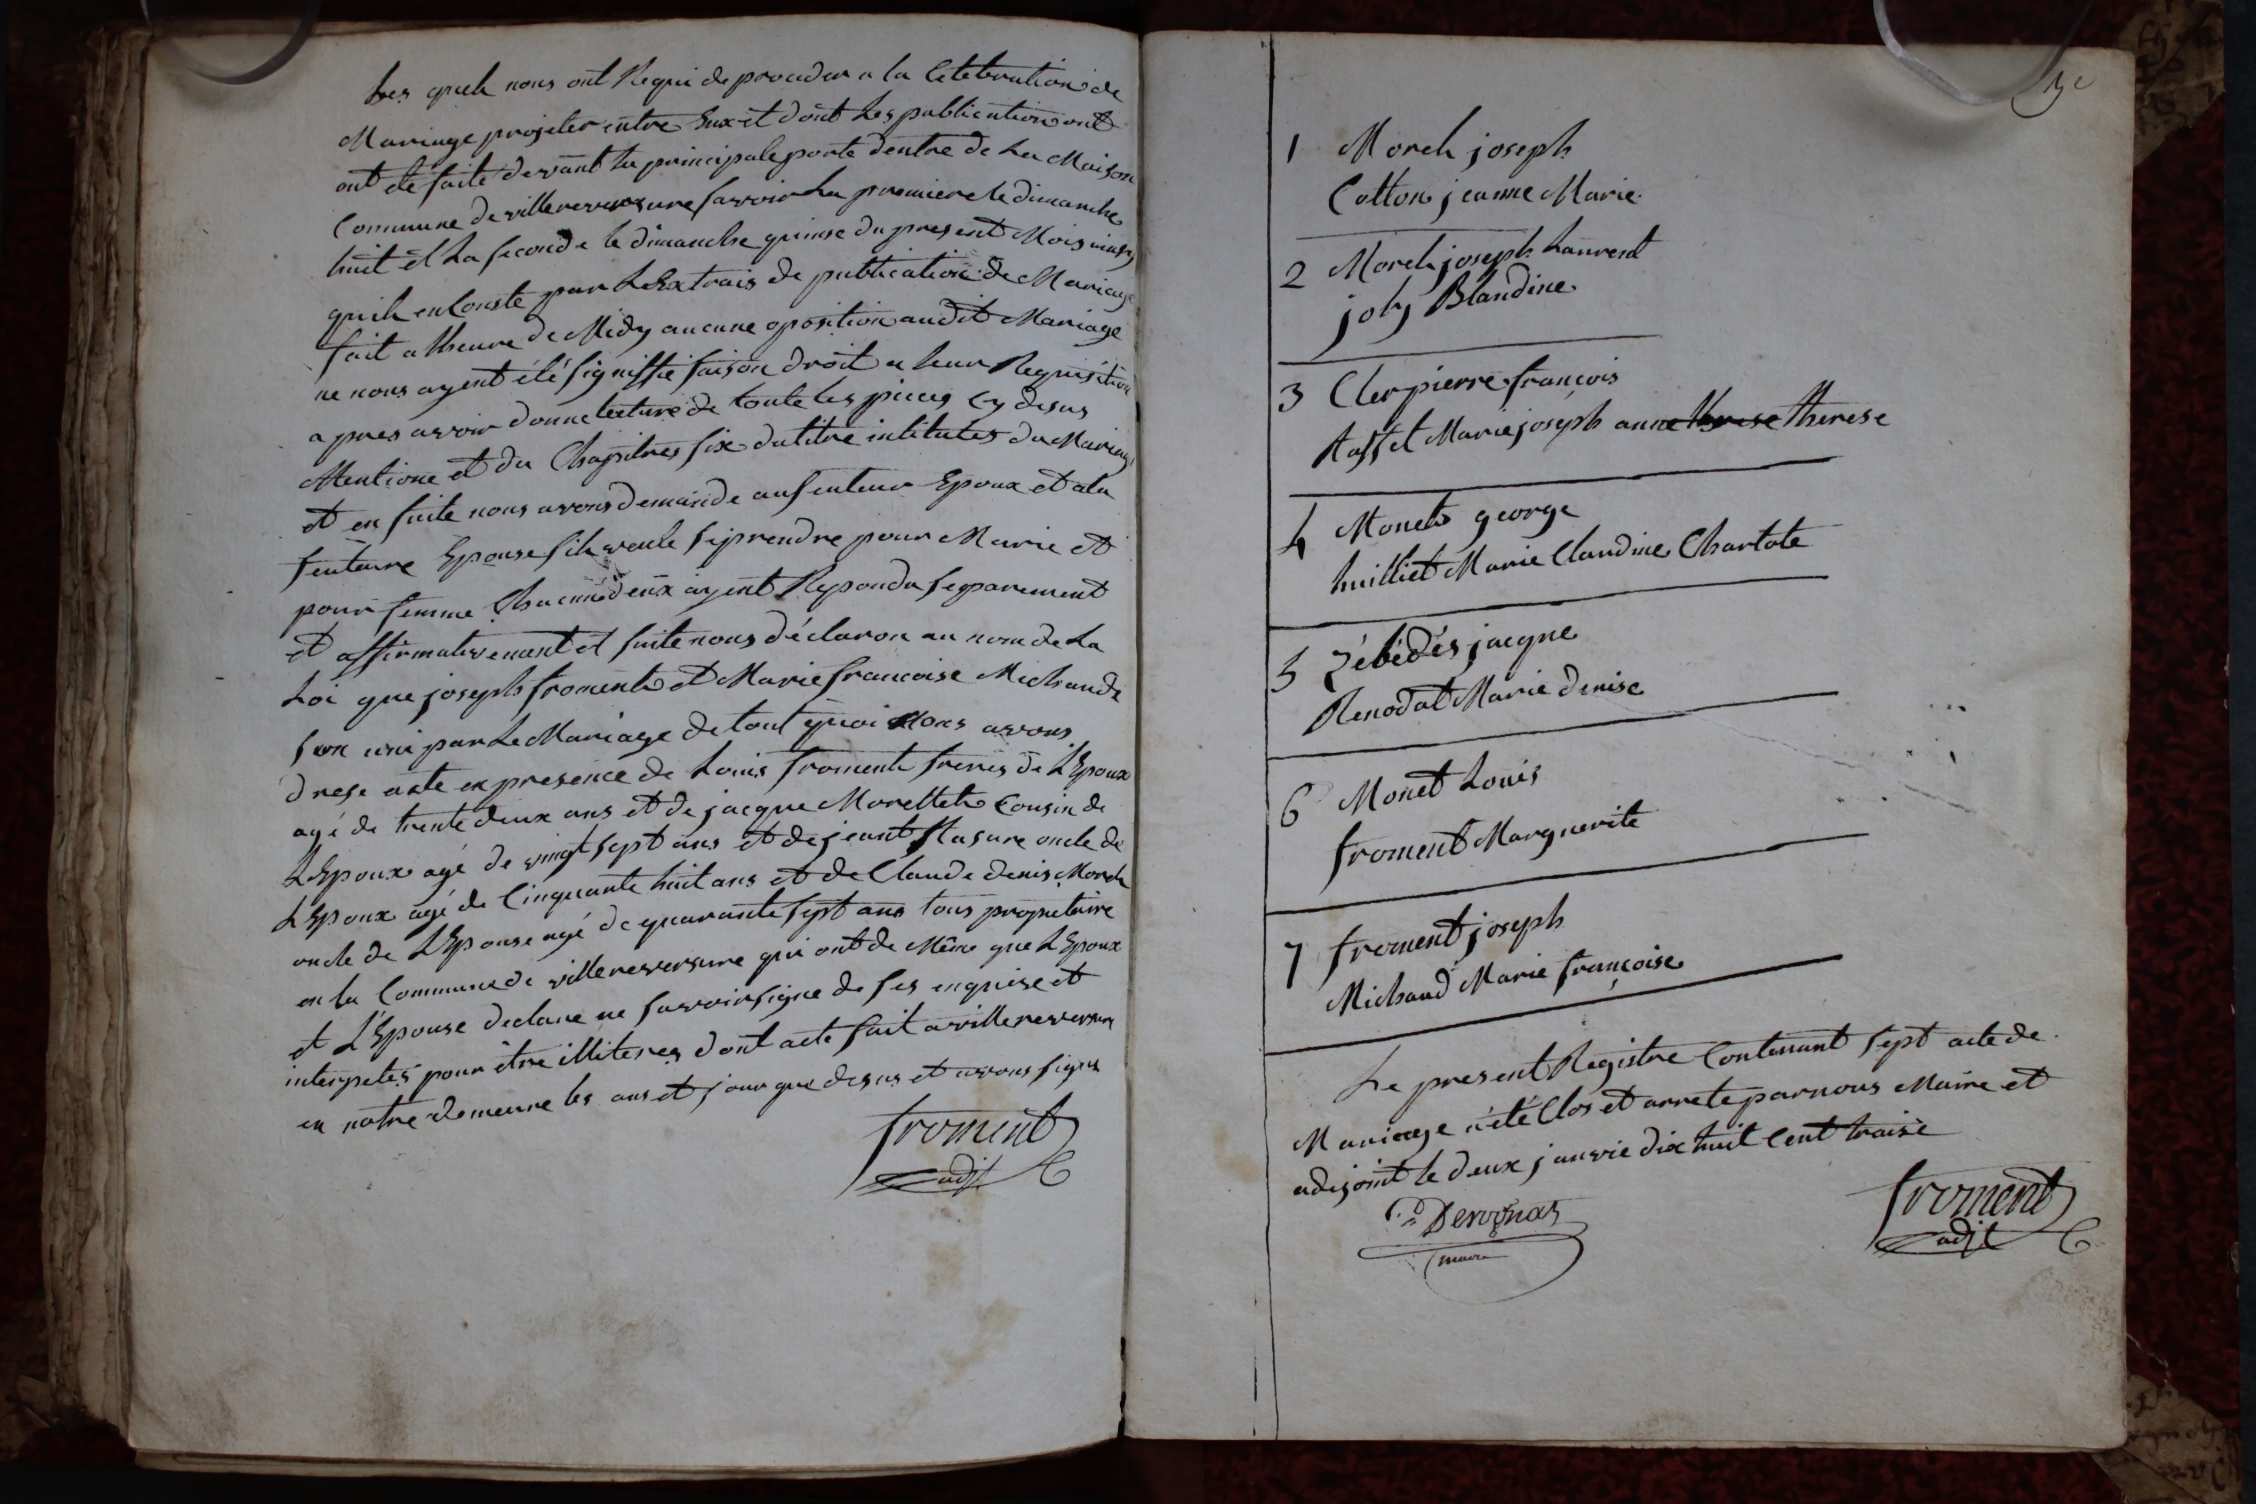 Les quels nous ont Requi de proceder a la Celebration de
Mariage projeter entre Eux et dont Les publication ont
ont été faite devant la principale porte dentre de La Maison
Commune de villereversure savoir La premiere le dimanche
huit et La seconde le dimanche quinse du present Mois
quil en Conste par LExtrais de publication de Mariage
fait a lheure de Midy aucune oposition audit Mariage
ne nous ayent été signiffie faison droit a leur Requisition
apres avoir donne lecture de toute les pieces Cy desus
Mentione et du Chapitres six du titre intitules du Mariage
et en suite nous avons demande au feuteur Epoux et a la
feuteure Epouse sils veule se prendre pour Marie et
pour femme Chacune deux ayent Repondu separement
et affirmativement et suite nous déclaron au nom de La
Loi que joseph froment et Marie francoise Michaud
son uni par Le Mariage de tout quoi Nous avons
drese acte en presence de Louis froment freres de LEpoux
agé de trente deux ans et de jacque Morellet Cousin de
LEpoux agé de vingt sept ans et de jeant Masure oncle de
LEpoux agé de Cinquante huit ans et de Claude denis Morel
oncle de LEpouse agé de quarante sept ans tous propietaire
en la Commune de villereversure qui ont de Même que LEpoux
et LEpouse declare ne savoir signe de ses enquise et
interpeles pour être illiteres dont acte fait a villereversure
en notre demeure les ans et jour que desus et avons signe
froment
adjt
1 Morel joseph
Cotton jeanne Marie
2 Morel joseph Laurent
joly Blandine
3 Cler pierre françois
Tasset Marie joseph anne therese therese
4 Monet george
huilliet Marie Claudine Charlote
5 Zébédés jacque
Renodat Marie denise
6 Monet Louis
froment Marguerite
7 froment joseph
Michaud Marie françoise
Le present Registre Contenant sept acte de
Mariage a été Clos et arrete par nous Maire et
adejoint le deux janvie dix huit Cent traise
Dervonas
maire
froment
adjt